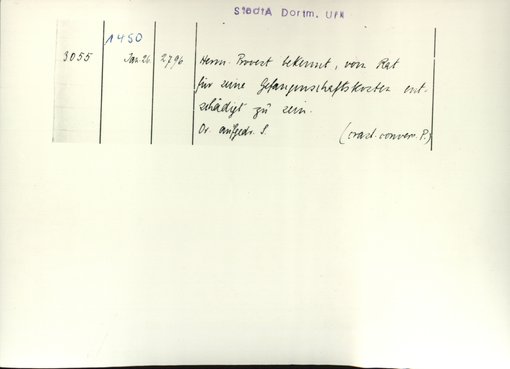 StadtA Dortm. Urk
1450
3055 Jan. 26. 2796 Herm. Provest bekennt, vom Rat
für seine Gefangenschaftskosten ent-
schädigt zu sein.
Or. aufgedr. S. (crast. convers. P.)